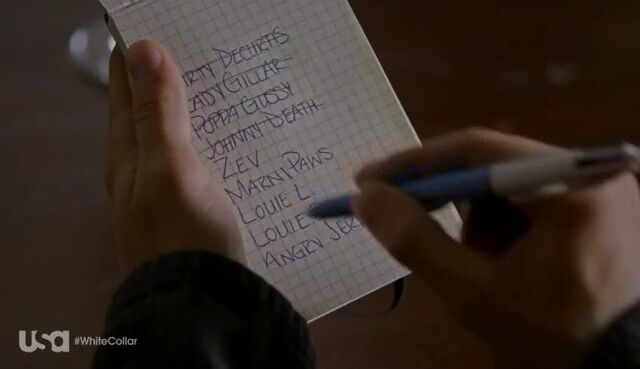 DECURTIS
LADY GILLAR
POPPA GLOSSY
JOHNNY DEATH
ZEV
MARNI PAWS
LOUIE L
LOUIE
ANGRY
usa #WhiteCollar